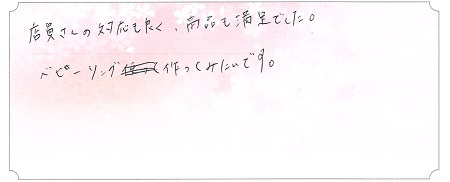 店員さんの対応も良く、商品も満足でした。
ベビーリング作ってみたいです。